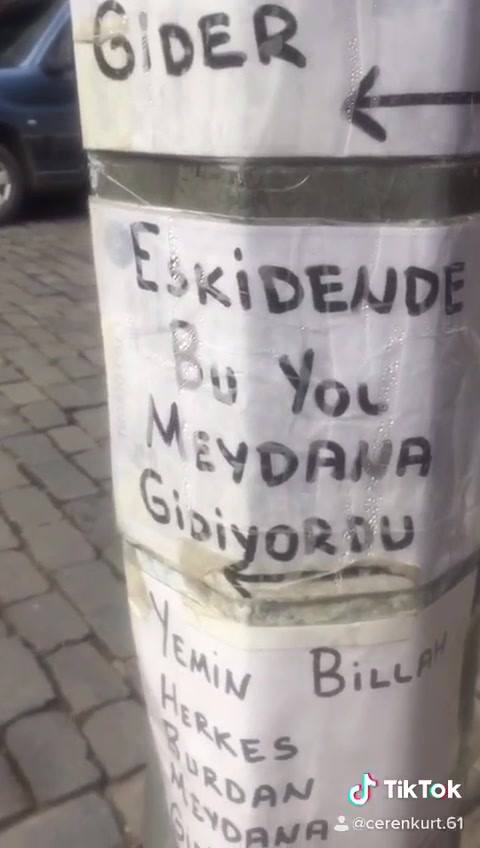 GİDER
ESKİDENDE
BU YOL
MEYDANA
GİDİYORDU
YEMİN BİLLAH
HERKES
BURDAN
MEYDANA
TikTok
@cerenkurt.61